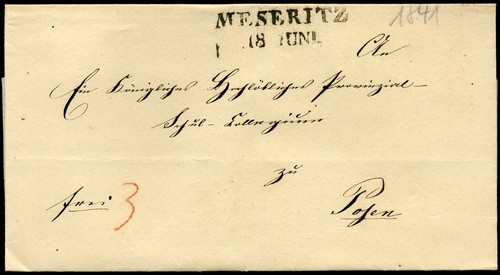 MESERITZ
18 JUNI.
1841
An
Ein Königliches Hochlöbliches Provinzial-
Schul-Collegium
zu
frei 3
Posen